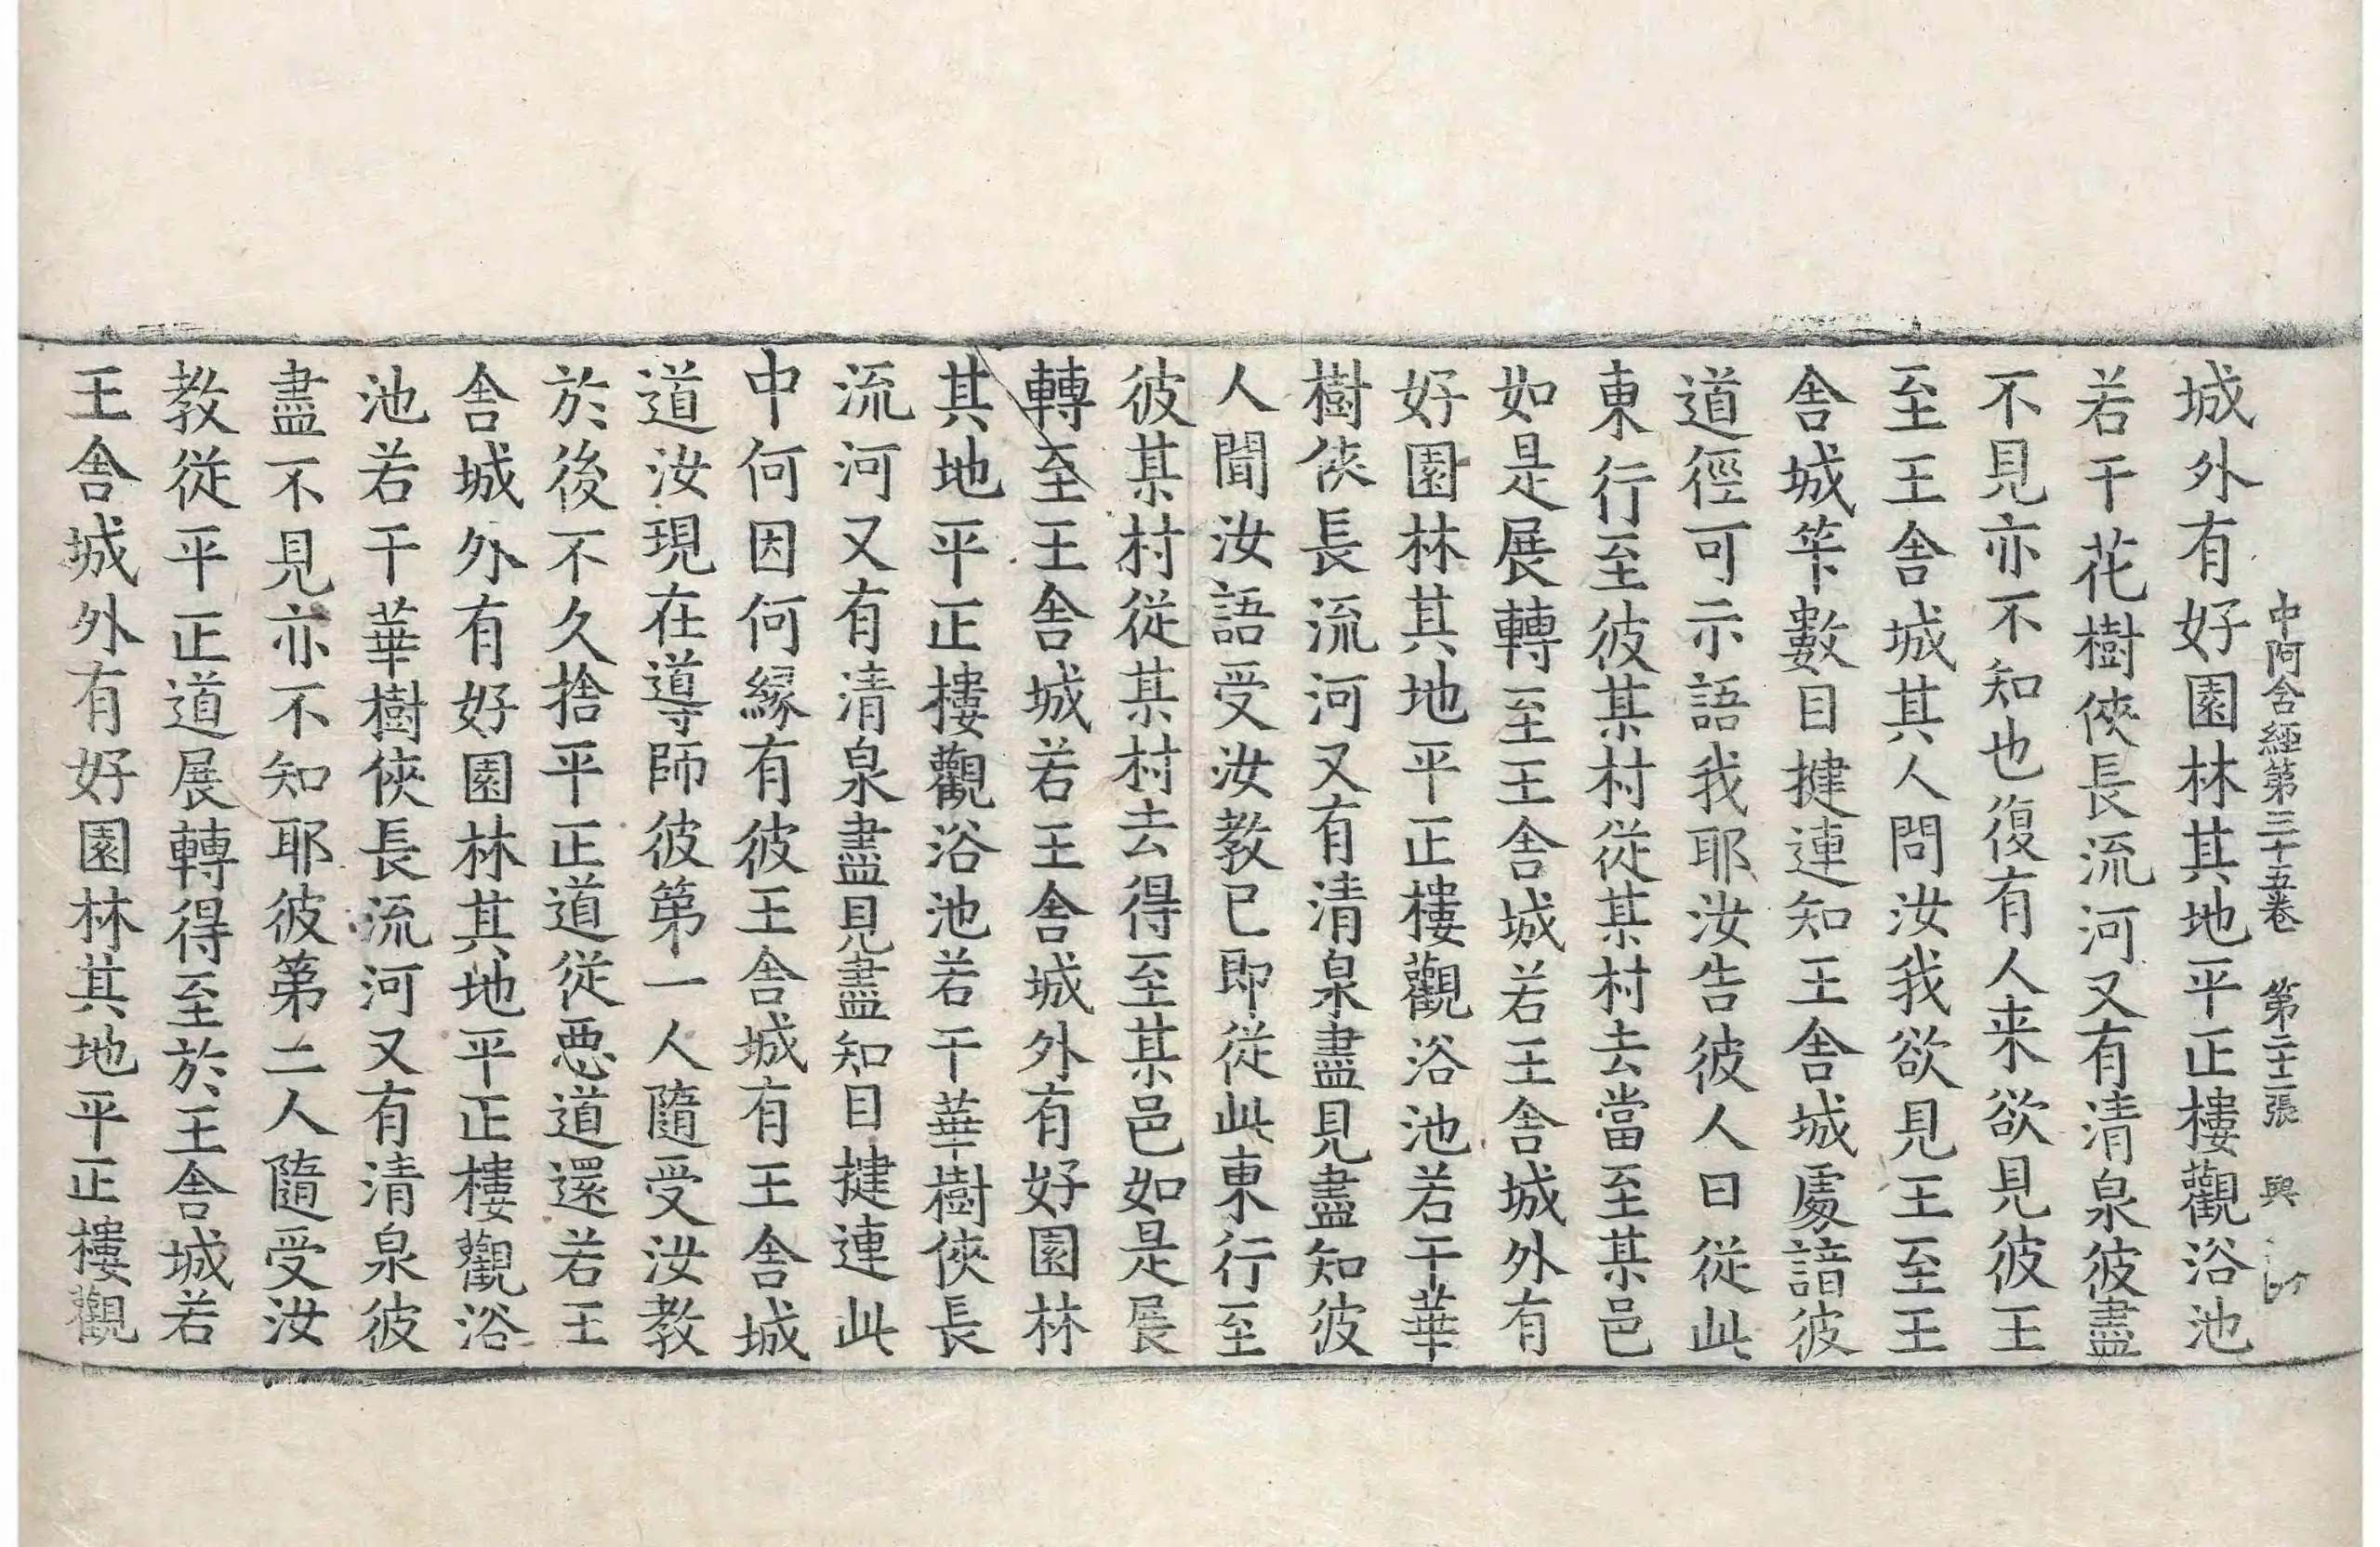 中阿含經第三十五卷 第二十二張 興
城外有好園林其地平正樓觀浴池
若干花樹俠長流河又有清泉彼盡
不見亦不知也復有人来欲見彼王
至王舍城其人問汝我欲見王至王
舍城笇數目揵連知王舍城處諳彼
道徑可示語我耶汝告彼人曰從此
東行至彼某村從某村去當至某邑
如是展轉至王舍城若王舍城外有
好園林其地平正樓觀浴池若干華
樹俠長流河又有清泉盡見盡知彼
人聞汝語受汝教已即從此東行至
彼某村從某村去得至某邑如是展
轉至王舍城若王舍城外有好園林
其地平正樓觀浴池若干華樹俠長
流河又有清泉盡見盡知目揵連此
中何因何緣有彼王舍城有王舍城
道汝現在導師彼第一人隨受汝教
於後不久捨平正道從惡道還若王
舍城外有好園林其地平正樓觀浴
池若干華樹俠長流河又有清泉彼
盡不見亦不知耶彼第二人隨受汝
教從平正道展轉得至於王舍城若
王舍城外有好園林其地平正樓觀